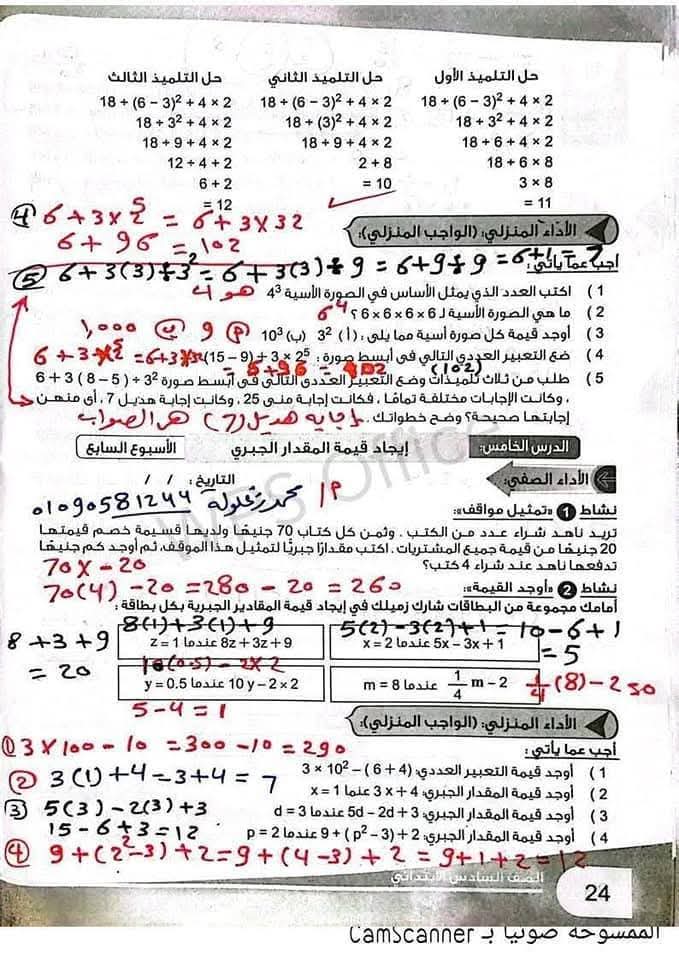 حل التلميذ الأول حل التلميذ الثاني حل التلميذ الثالث
18 ÷ (6 – 3)² + 4 × 2 18 ÷ (6 – 3)² + 4 × 2 18 ÷ (6 – 3)² + 4 × 2
18 ÷ 3² + 4 × 2 18 ÷ (3)² + 4 × 2 18 ÷ 3² + 4 × 2
18 ÷ 6 + 4 × 2 18 ÷ 9 + 4 × 2 18 ÷ 9 + 4 × 2
18 ÷ 6 × 8 2 + 8 12 ÷ 4 + 2
3 × 8 = 10 6 + 2
= 11 = 12
④ 6 + 3 × 2⁵ = 6 + 3 × 32
6 + 96 = 102
الأداء المنزلي: (الواجب المنزلي):
⑤ 6 + 3(3) ÷ 3² = 6 + 3(3) ÷ 9 = 6 + 9 ÷ 9 = 6 + 1 = 7
أجب عما يأتي:
1 ) اكتب العدد الذي يمثل الأساس في الصورة الأسية 4³ هو 4
2 ) ما هي الصورة الأسية لـ 6 × 6 × 6 × 6 ؟ 6⁴
3 ) أوجد قيمة كل صورة أسية مما يلى: (أ) 3² (ب) 10³ (P) 9 (ب) 1,000
4 ) ضع التعبير العددي التالي في أبسط صورة: (15 – 9) + 3 × 2⁵ (102)
6 + 3 × 2⁵ = 6 + 3 × 32
= 6 + 96 = 102
5 ) طلب من ثلاث تلميذات وضع التعبير العددي التالي في أبسط صورة 6 + 3 ( 8 – 5 ) ÷ 3²
، وكانت الإجابات مختلفة تمامًا ، فكانت إجابة منى 25، وكانت إجابة هديل 7، أى منهن
إجابتها صحيحة؟ وضح خطواتك. إجابه هديل (7) هى الصواب
الدرس الخامس: إيجاد قيمة المقدار الجبري الأسبوع السابع
الأداء الصفي: التاريخ: / /
أ/ محمد زغلوله 01090581244
WPS Office
نشاط 1 «تمثيل مواقف»:
تريد ناهد شراء عدد من الكتب . وثمن كل كتاب 70 جنيهًا ولديها قسيمة خصم قيمتها
20 جنيهًا من قيمة جميع المشتريات. اكتب مقدارًا جبريًا لتمثيل هذا الموقف، ثم أوجد كم جنيهًا
تدفعها ناهد عند شراء 4 كتب؟
70x – 20
70(4) – 20 = 280 – 20 = 260
نشاط 2 «أوجد القيمة»:
أمامك مجموعة من البطاقات شارك زميلك في إيجاد قيمة المقادير الجبرية بكل بطاقة:
8(1) + 3(1) + 9 5(2) – 3(2) + 1 = 10 – 6 + 1
8 + 3 + 9 = 20 = 5
5x – 3x + 1 عندما x = 2 8z + 3z + 9 عندما z = 1
10(0.5) – 2 × 2 ¼(8) – 2
¼ m – 2 عندما m = 8 10 y – 2 × 2 عندما y = 0.5
5 – 4 = 1
الأداء المنزلي: (الواجب المنزلي):
أجب عما يأتي:
① 3 × 100 – 10 = 300 – 10 = 290
1 ) أوجد قيمة التعبير العددي: 3 × 10² – ( 6 + 4 )
② 3(1) + 4 = 3 + 4 = 7
2 ) أوجد قيمة المقدار الجبري: 3 x + 4 عنما x = 1
③ 5(3) – 2(3) + 3
3 ) أوجد قيمة المقدار الجبري: 5d – 2d + 3 عندما d = 3
15 – 6 + 3 = 12
4 ) أوجد قيمة المقدار الجبري: 9 + ( p² – 3) + 2 عندما p = 2
④ 9 + (2² – 3) + 2 = 9 + (4 – 3) + 2 = 9 + 1 + 2 = 12
الصف السادس الابتدائي
24
الممسوحة ضوئيا بـ CamScanner